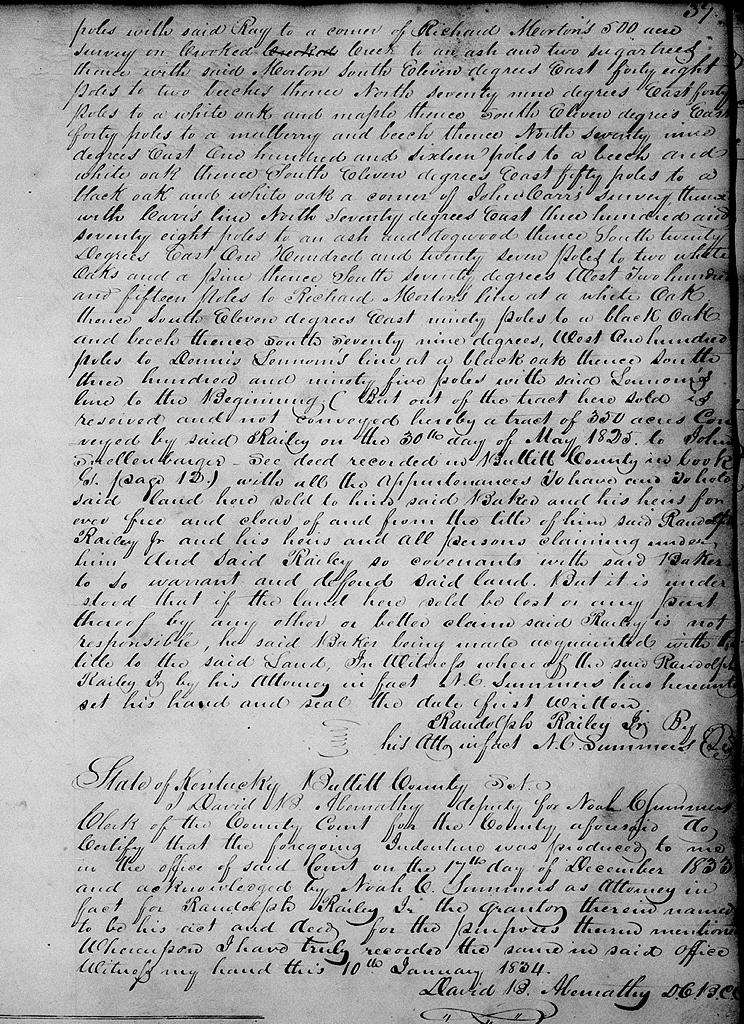 37
poles with said Ray to a corner of Richard Morton's 500 acre
survey on Crooked Creek to an ash and two sugartrees
thence with said Morton South Eleven degrees East forty eight
poles to two beeches thence North seventy nine degrees East forty
poles to a white oak and maple thence South Eleven degrees East
forty poles to a mulberry and beech thence North seventy nine
degrees East One hundred and sixteen poles to a beech and
white oak thence South Eleven degrees East fifty poles to a
black oak and white oak a corner of John Carr's survey thence
with Carr's line North Seventy degrees East three hundred and
seventy eight poles to an ash and dogwood thence South twenty
Degrees East One Hundred and twenty seven Poles to two white
Oaks and a pine thence South seventy degrees West Two hundred
and fifteen Poles to Richard Morton's line at a white Oak
thence South Eleven degrees East ninety poles to a black Oak
and beech thence South Seventy nine degrees, West One hundred
poles to Dennis Lennom's line at a black oak thence South
three hundred and ninety five poles with said Lennom's
line to the Beginning, (But out of the tract here sold is
reserved and not conveyed hereby a tract of 350 acres Con
veyed by said Railey on the 30th day of May 1825 to John
Shellenbarger - See deed recorded in Bullitt County in book
G. page 12.) with all the Appurtenances To have and To hold
said land here sold to him said Baker and his heirs for
ever free and clear, of and from the title of him said Randolph
Railey Jr and his heirs and all persons claiming under
him And said Railey so covenants with said Baker
to so warrant and defend said land. But it is under
stood that if the land here sold be lost or any part
thereof by any other or better claim said Railey is not
responsible, he said Baker being made acquainted with the
title to the said Land, In Witness where of the said Randolph
Railey Jr by his Attorney in fact N.C. Summers has hereunto
set his hand and seal the date first written
Randolph Railey Jr. By
his Atto in fact N.C. Summers
State of Kentucky Bullitt County Sct.
I David B. Abernathy deputy for Noah C Summers
Clerk of the County Court for the County aforesaid Do
Certify that the foregoing Indenture was produced to me
in the office of said Court on the 17th day of December 1833
and acknowledged by Noah C. Summers as Attorney in
fact for Randolph Railey Jr the grantor therein named
to be his act and deed for the purposes therein mentioned
Whereupon I have truly recorded the same in said office
Witness my hand this 10th January 1834.
David B. Abernathy DC B.C.C